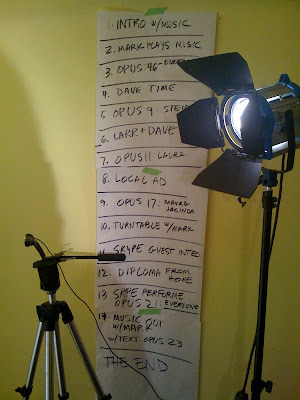 1. INTRO W/MUSIC
2. MARK PLAYS MISIC
3. OPUS 46-
4. DAVE TIME
5. OPUS 9:
6. LARR + DAVE
7. OPUS 11: LAURA
8. LOCAL AD
9. OPUS 17: MAURO
JACINDA
10. TURNTABLE W/MARK
11. SKYPE GUEST INTRO
12. DIPLOMA FROM
HOME
13. SKPE PERFORME
OPUS 21: EVERYONE
14. MUSIC OUT
W/MARK
W/TEXT OPUS 23
THE END